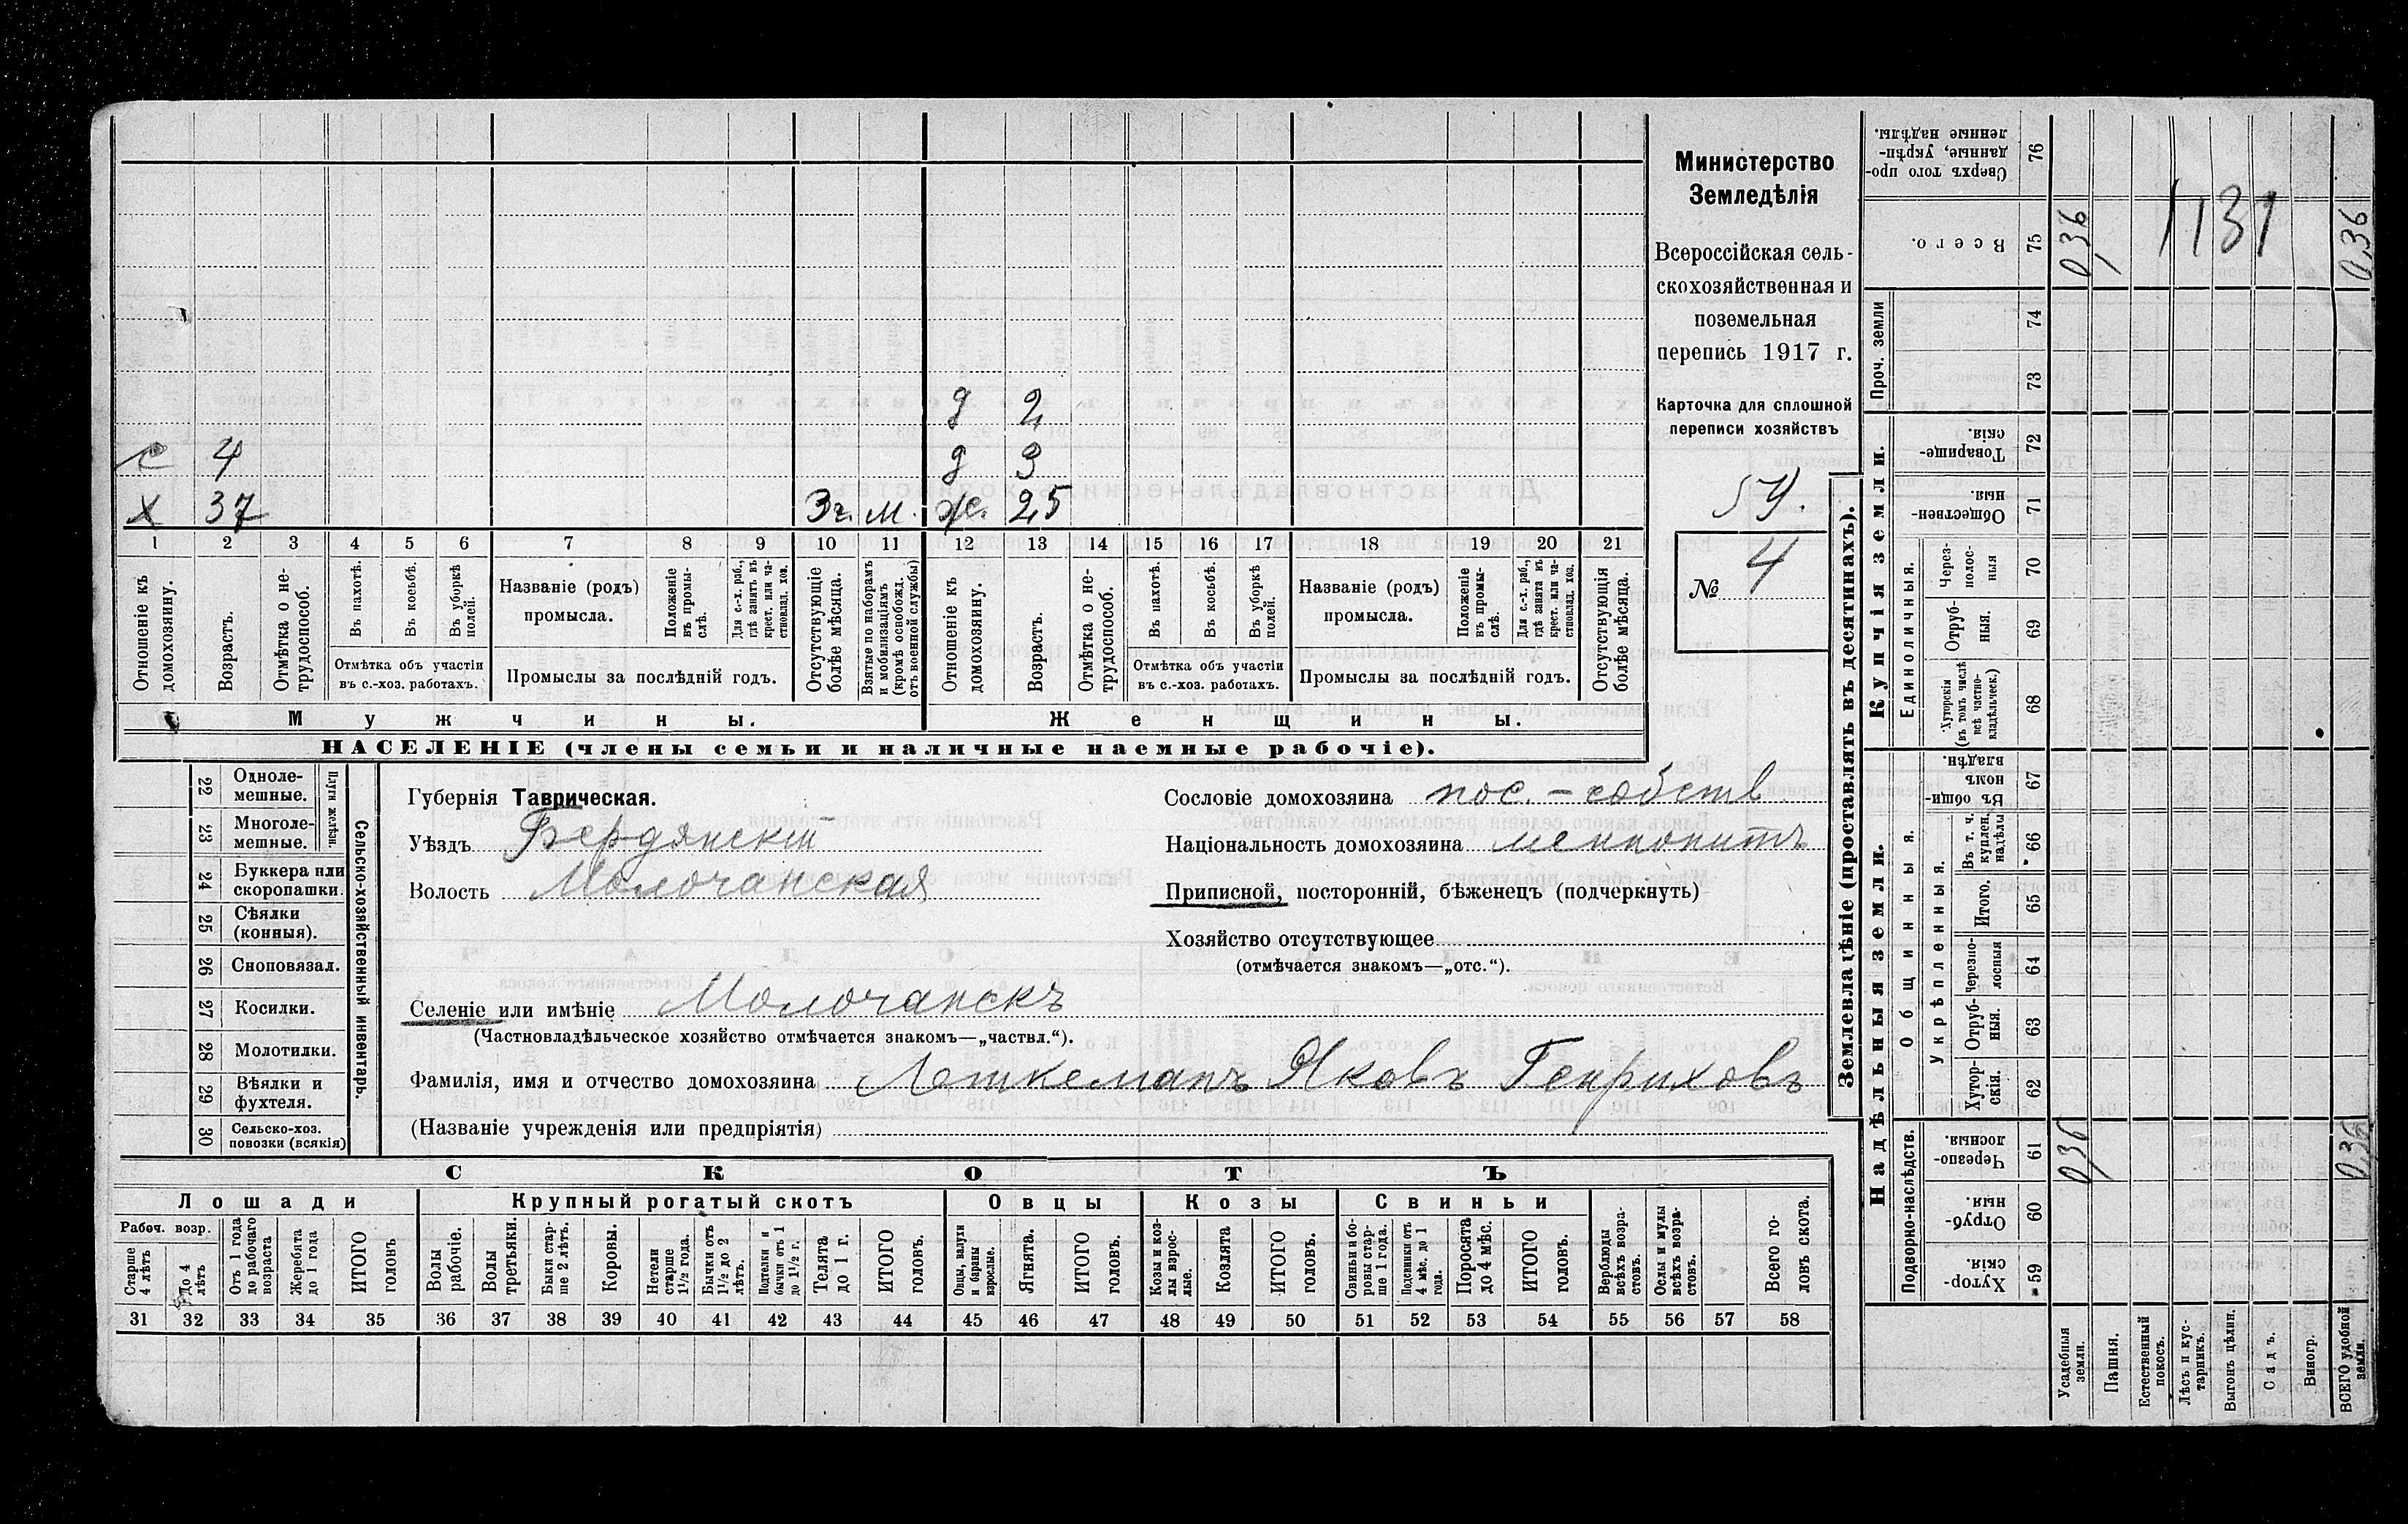 д 2
с 4 д 3
х 37 3 г. м. ж. 25
1 2 3 4 5 6 7 8 9 10 11 12 13 14 15 16 17 18 19 20 21
Отношеніе къ домохозяину.
Возрастъ.
Отмѣтка о не-
трудоспособ.
Въ пахотѣ.
Въ косьбѣ.
Въ уборкѣ
полей.
Отмѣтка объ участіи
въ с.-хоз. работахъ.
Названіе (родъ)
промысла.
Положеніе
въ промы-
слѣ.
Для с.-х. раб.,
гдѣ занятъ въ
крест. или ча-
стновлад. хоз.
Промыслы за послѣдній годъ.
Отсутствующіе
болѣе мѣсяца.
Взятые по наборамъ
и мобилизаціямъ
(кромѣ освобожд.
отъ военной службы)
Отношеніе къ
домохозяину.
Возрастъ.
Отмѣтка о не-
трудоспособ.
Въ пахотѣ.
Въ косьбѣ.
Въ уборкѣ
полей.
Отмѣтка объ участіи
въ с.-хоз. работахъ.
Названіе (родъ)
промысла.
Положеніе
въ промы-
слѣ.
Для с.-х. раб.,
гдѣ занята въ
крест. или ча-
стновлад. хоз.
Промыслы за послѣдній годъ.
Отсутствующія
болѣе мѣсяца.
Мужчины.
Женщины.
НАСЕЛЕНІЕ (члены семьи и наличные наемные рабочіе).
Министерство
Земледѣлія
Всероссійская сель-
скохозяйственная и
поземельная
перепись 1917 г.
Карточка для сплошной
переписи хозяйствъ
№ 4
22 Однолe-
мешные.
23 Многоле-
мешные.
Плуги желѣзн.
24 Буккера или
скоропашки.
25 Сѣялки
(конныя).
26 Сноповязал.
27 Косилки.
28 Молотилки.
29 Вѣялки и
фухтеля.
30 Сельско-хоз.
повозки (всякія)
Сельско-хозяйственный инвентарь.
Губернія Таврическая.
Уѣздъ Бердянскій
Волость Молочанская
Сословіе домохозяина пос. - собств
Національность домохозяина меннонитъ
Приписной, посторонній, бѣженецъ (подчеркнуть)
Хозяйство отсутствующее
(отмѣчается знакомъ—„отс.“).
Селеніе или имѣніе Молочанскъ
(Частновладѣльческое хозяйство отмѣчается знакомъ—„частвл.“).
Фамилія, имя и отчество домохозяина Леткеманъ Яковъ Генриховъ
(Названіе учрежденія или предпріятія)
СКОТЪ
Лошади
Рабоч. возр.
Старше
4 лѣтъ
До 4
лѣтъ
Отъ 1 года
до рабочаго
возраста
Жеребята
до 1 года
ИТОГО
головъ
Крупный рогатый скотъ
Волы
рабочіе.
Волы
третьяки.
Быки стар-
ше 2 лѣтъ.
Коровы.
Нетели
старше
1½ года.
Бычки отъ
1½ до 2
лѣтъ.
Подтелки и
бычки отъ 1
до 1½ г.
Телята
до 1 г.
ИТОГО
головъ.
Овцы
Овцы, валухи
и бараны
взрослые.
Ягнята.
ИТОГО
головъ.
Козы
Козы и коз-
лы взрос-
лые.
Козлята
ИТОГО
головъ.
Свиньи
Свиньи и бо-
ровы стар-
ше 1 года.
Подсвинки отъ
4 мѣс. до 1
года.
Поросята
до 4 мѣс.
ИТОГО
головъ.
Верблюды
всѣхъ возра-
стовъ.
Ослы и мулы
всѣхъ возра-
стовъ.
Всего го-
ловъ скота.
31 32 33 34 35 36 37 38 39 40 41 42 43 44 45 46 47 48 49 50 51 52 53 54 55 56 57 58
Землевладѣніе (проставлять въ десятинахъ).
Купчія земли.
Сверхъ того про-
данные, укрѣп-
ленные надѣлы.
76
Всего.
75 0,36 1131 0,36
Проч. земли
74
73
Товарище-
скія.
72
Обществен-
ныя.
71
Единоличныя.
Через-
полос-
ныя
70
Отруб-
ныя.
69
Хуторскія
(въ томъ числѣ
всѣ частно-
владѣльческ.)
68
Надѣльныя земли.
Общинныя.
Въ общи-
номъ
владѣн.
67
Укрѣпленныя.
Въ т. ч.
куплен.
надѣлы
66
Итого.
65
Черезпо-
лосныя
64
Отруб-
ныя.
63
Хутор-
скія.
62
Подворно-наслѣдств.
Черезпо-
лосныя
61 0,36 0,36
Отруб-
ныя.
60
Хутор-
скія.
59
Усадебныя
земли.
Пашня.
Естественный
покосъ.
Лѣсъ и кус-
тарникъ.
Выгонъ цѣлин.
Садъ.
Виногр.
ВСЕГО удобной
земли.